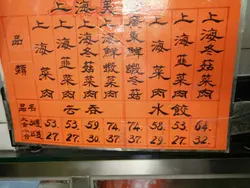 品類
上海菜肉
上海韮菜肉
上海冬菇菜肉
上海鮮蝦菜肉
廣東鮮蝦冬菇
上海菜肉
上海韮菜肉
上海冬菇菜肉
品名 云吞 水餃
53. 53. 59. 74. 74. 58. 53. 64.
27. 27. 30. 37. 37. 29. 27. 32.